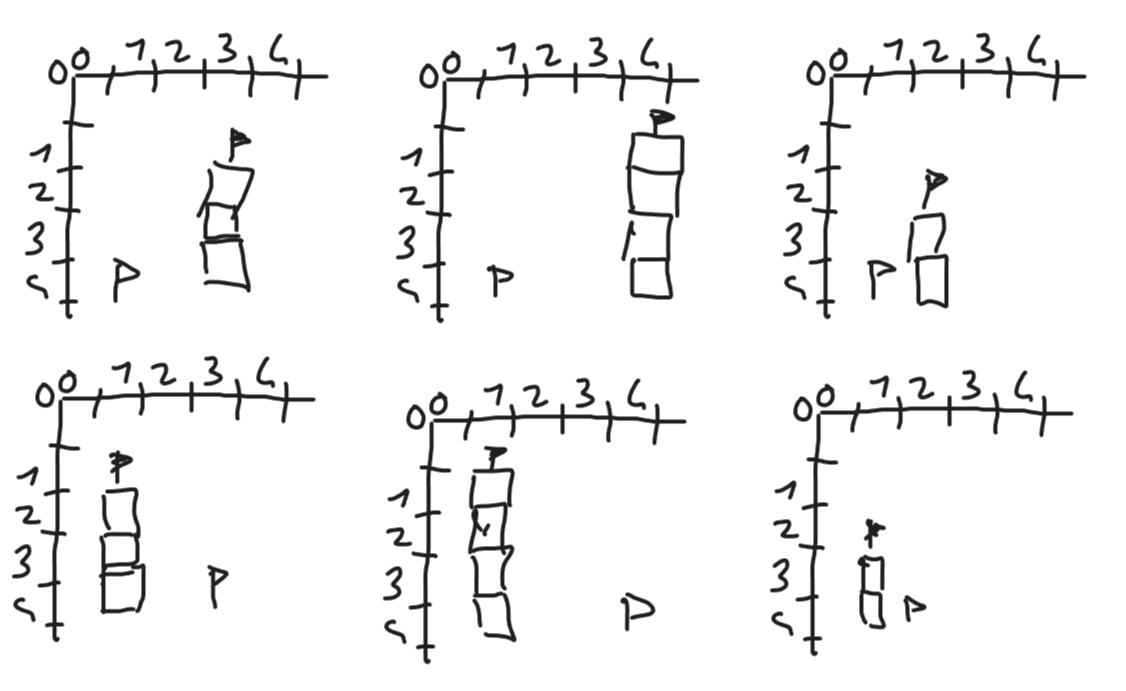 0 0 1 2 3 4
1
2
3
4
P
0 0 1 2 3 4
1
2
3
4
P
0 0 1 2 3 4
1
2
3
4
P
0 0 1 2 3 4
1
2
3
4
P
0 0 1 2 3 4
1
2
3
4
P
0 0 1 2 3 4
1
2
3
4
P